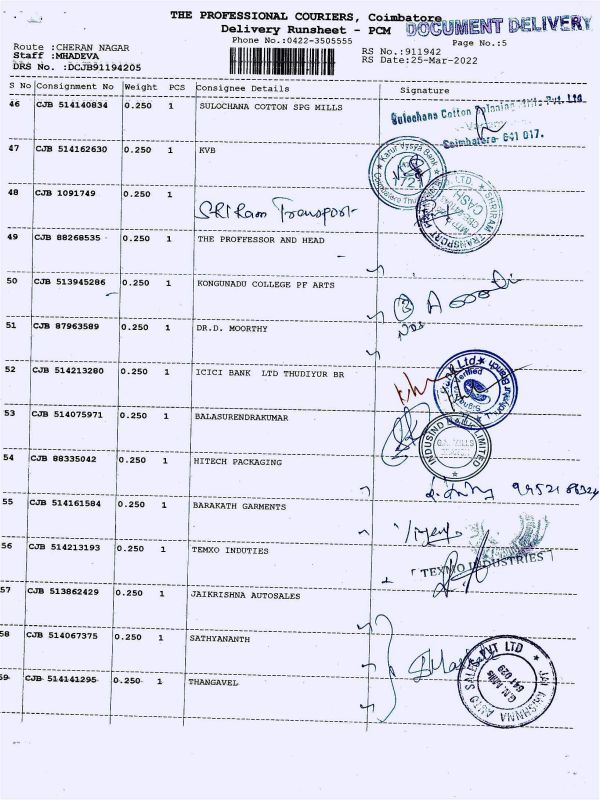 THE PROFESSIONAL COURIERS, Coimbatore
DOCUMENT DELIVERY
Delivery Runsheet - PCM
Phone No.:0422-3505555
Page No.:5
Route :CHERAN NAGAR
RS No.:911942
Staff :MHADEVA
RS Date:25-Mar-2022
DRS No. :DCJB91194205
S No Consignment No Weight PCS Consignee Details Signature
46 CJB 514140834 0.250 1 SULOCHANA COTTON SPG MILLS
Sulochana Cotton Mills Pvt. Ltd
Coimbatore - 641 017.
47 CJB 514162630 0.250 1 KVB
Karur Vysya Bank
48 CJB 1091749 0.250 1 Sri Ram Transport
SHRIRAM TRANSPORT
49 CJB 88268535 0.250 1 THE PROFFESSOR AND HEAD
50 CJB 513945286 0.250 1 KONGUNADU COLLEGE PF ARTS
51 CJB 87963589 0.250 1 DR.D. MOORTHY
52 CJB 514213280 0.250 1 ICICI BANK LTD THUDIYUR BR
53 CJB 514075971 0.250 1 BALASURENDRAKUMAR
INDUSIND BANK LIMITED
54 CJB 88335042 0.250 1 HITECH PACKAGING
55 CJB 514161584 0.250 1 BARAKATH GARMENTS
56 CJB 514213193 0.250 1 TEMXO INDUTIES
TEXMO INDUSTRIES
57 CJB 513862429 0.250 1 JAIKRISHNA AUTOSALES
58 CJB 514067375 0.250 1 SATHYANANTH
JAI KRISHNNA AUTO SALES PVT LTD
G.N. Mills
641 029
59 CJB 514141295 0.250 1 THANGAVEL